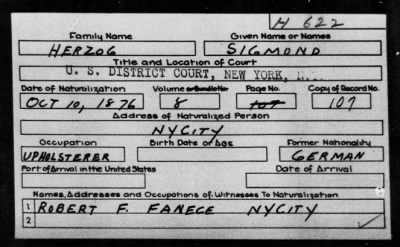 H 622
Family Name Given Name or Names
HERZOG SIGMOND
Title and Location of Court
U. S. DISTRICT COURT, NEW YORK, N.Y.
Date of Naturalization Volume or Bundle No. Page No. Copy of Record No.
OCT 10, 1876 8 107 107
Address of Naturalized Person
NYCITY
Occupation Birth Date or Age Former Nationality
UPHOLSTERER GERMAN
Port of Arrival in the United States Date of Arrival
Names, Addresses and Occupations of Witnesses To Naturalization
1 ROBERT F. FANECE NYCITY
2